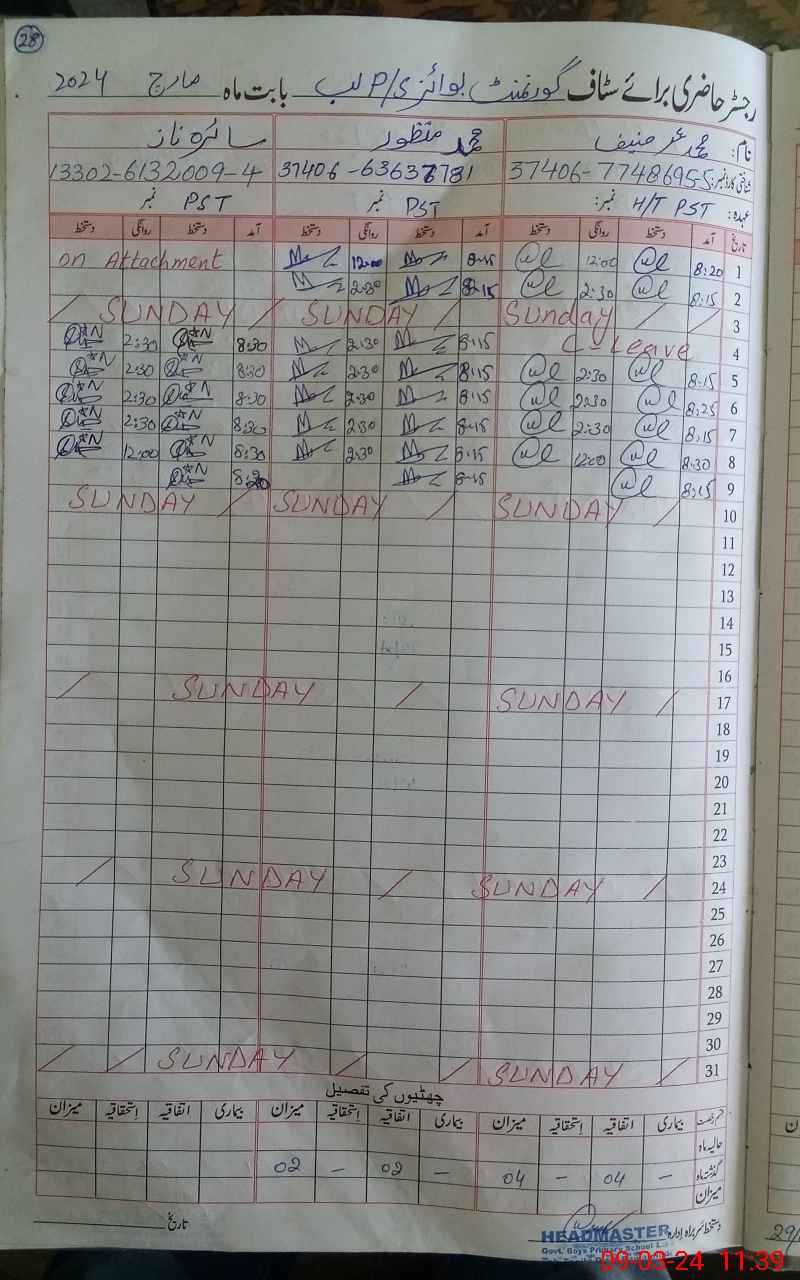 28
رجسٹر حاضری برائے سٹاف گورنمنٹ بوائز P/S لب بابت ماہ مارچ 2024
نام: محمد عمر حنیف محمد منظور سائرہ ناز
شناختی کارڈ نمبر: 37406-77486955 37406-63637781 13302-6132009-4
عہدہ: H/T PST نمبر: PST نمبر PST نمبر
تاریخ آمد دستخط روانگی دستخط آمد دستخط روانگی دستخط آمد دستخط روانگی دستخط
1 8:20 12:00 8-15 12:00 on Attachment
2 8:15 2:30 8:15 2:30
3 Sunday SUNDAY SUNDAY
4 C-Leave 8:15 2:30 8:30 2:30
5 8:15 2:30 8:15 2:30 8:30 2:30
6 8:25 2:30 8:15 2:30 8:30 2:30
7 8:15 2:30 8:15 2:30 8:30 2:30
8 8:30 12:00 8:15 2:30 8:30 12:00
9 8:15 8-15 8:30
10 SUNDAY SUNDAY SUNDAY
11
12
13
14
15
16
17 SUNDAY SUNDAY
18
19
20
21
22
23
24 SUNDAY SUNDAY
25
26
27
28
29
30
31 SUNDAY SUNDAY
چھٹیوں کی تفصیل
قسم رخصت بیماری اتفاقیہ استحقاقیہ میزان بیماری اتفاقیہ استحقاقیہ میزان بیماری اتفاقیہ استحقاقیہ میزان
حالیہ ماہ
گذشتہ ماہ - 04 - 04 - 02 - 02
میزان
دستخط سربراہ ادارہ تاریخ
HEADMASTER
Govt. Boys Primary School
09-03-24 11:39
29/